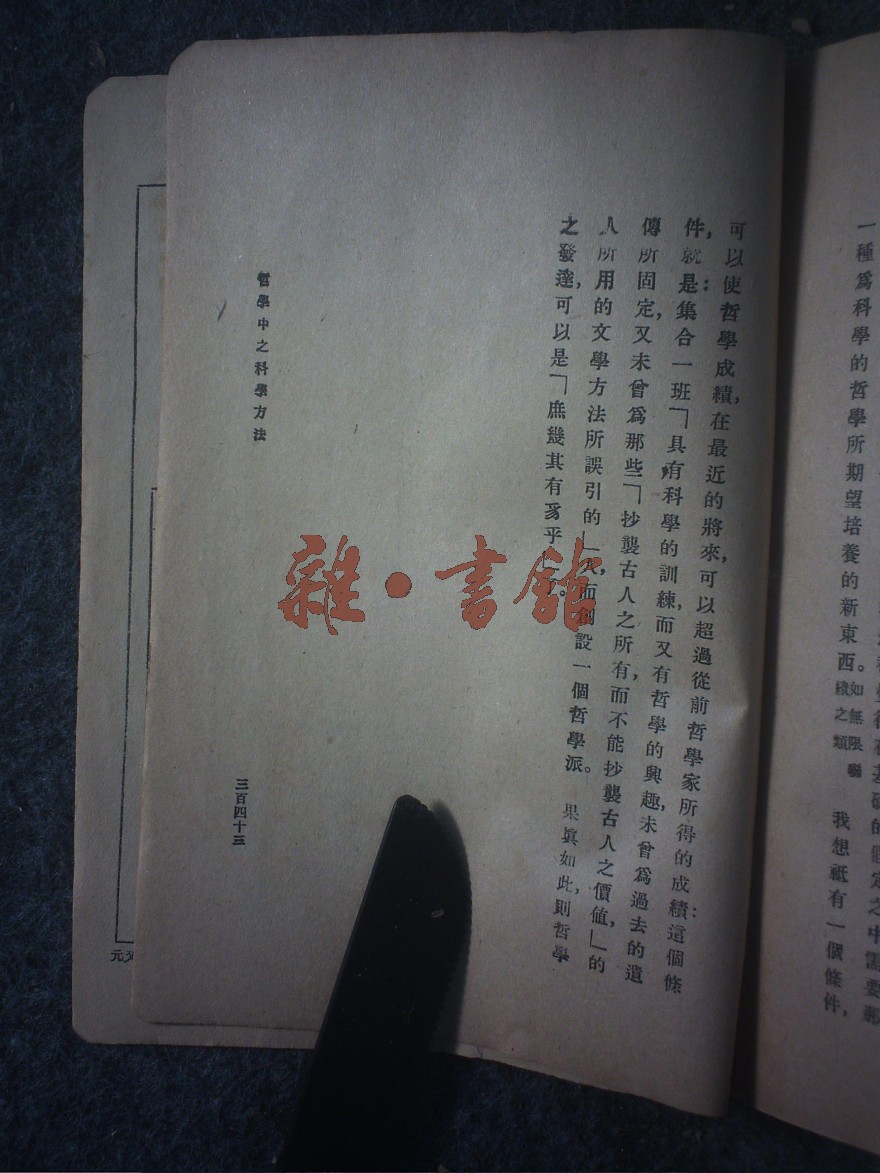 種爲科學的哲學所期望培養的新東西。如無限聯續之類 我想祇有一個條件,
可以使哲學成績,在最近的將來,可以超過從前哲學家所得的成績:這個條
件,就是:集合一班「具有科學的訓練,而又有哲學的興趣,未曾爲過去的遺
傳所固定,又未曾爲那些「抄襲古人之所有,而不能抄襲古人之價値,」的
人所用的文學方法所誤引的人,而創設一個哲學派。 果眞如此,則哲學
之發達,可以是「庶幾其有豸乎」。
哲學中之科學方法
三百四十三
雜·書館